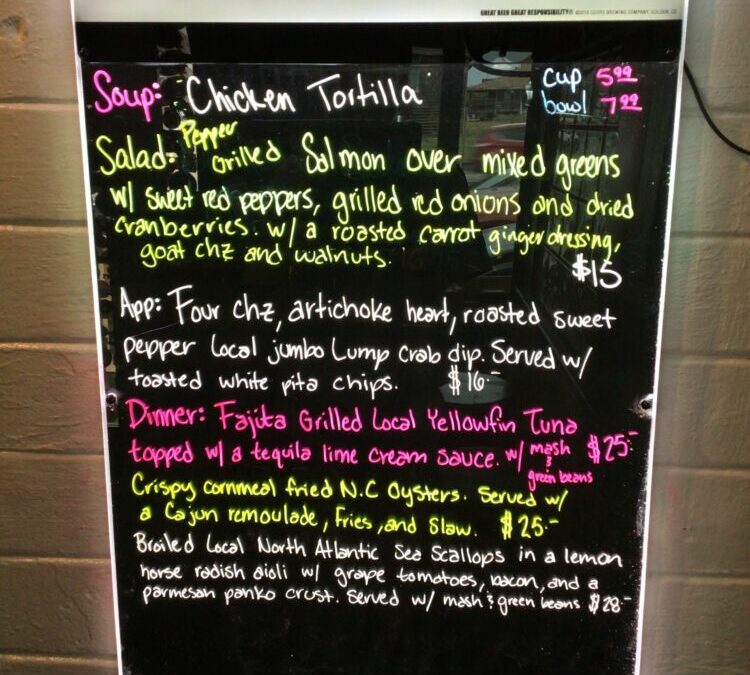 GREAT BEER GREAT RESPONSIBILITY® ©2013 COORS BREWING COMPANY, GOLDEN, CO
Soup: Chicken Tortilla cup 5.99
bowl 7.99
Salad= Pepper Grilled Salmon over mixed greens
w/ sweet red peppers, grilled red onions and dried
cranberries. w/ a roasted carrot ginger dressing,
goat chz and walnuts.
$15
App: Four chz, artichoke heart, roasted sweet
pepper Local jumbo Lump crab dip. Served w/
toasted white pita chips. $16.-
Dinner: Fajita Grilled Local Yellowfin Tuna
topped w/ a tequila lime cream sauce. w/ mash & green beans $25.-
Crispy cornmeal fried N.C Oysters. Served w/
a Cajun remoulade, Fries, and Slaw. $25.-
Broiled Local North Atlantic Sea Scallops in a lemon
horse radish aioli w/ grape tomatoes, bacon, and a
parmesan panko crust. Served w/ mash & green beans $28.-